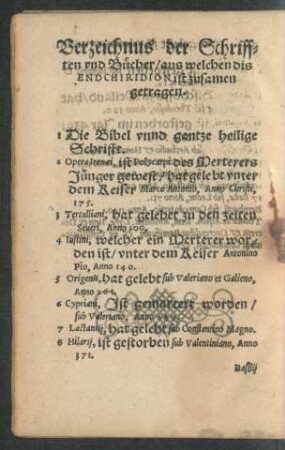 Verzeichnus der Schriff-
ten vnd Bücher/ aus welchen dis
ENDCHIRIDION ist zusamen
getragen.
1 Die Bibel vnnd gantze heilige
Schrifft.
2 Opera Irenei, ist Polycarpi des Merterers
Jünger gewest/ hat gelebt vnter
dem Keiser Marco Antonio, Anno Christi,
175.
3 Tertulliani, hat gelebet zu den zeiten
Seueri, Anno 200.
4 Iustini, welcher ein Merterer wor-
den ist/ vnter dem Keiser Antonino
Pio, Anno 140.
5 Origenis, hat gelebt sub Valeriano et Galieno,
Anno
6 Cypriani, Ist gemartert worden/
sub Valeriano, Anno
7 Lactantij, hat gelebt sub Constantino Magno.
8 Hilarij, ist gestorben sub Valentiniano, Anno
371.
Basilij